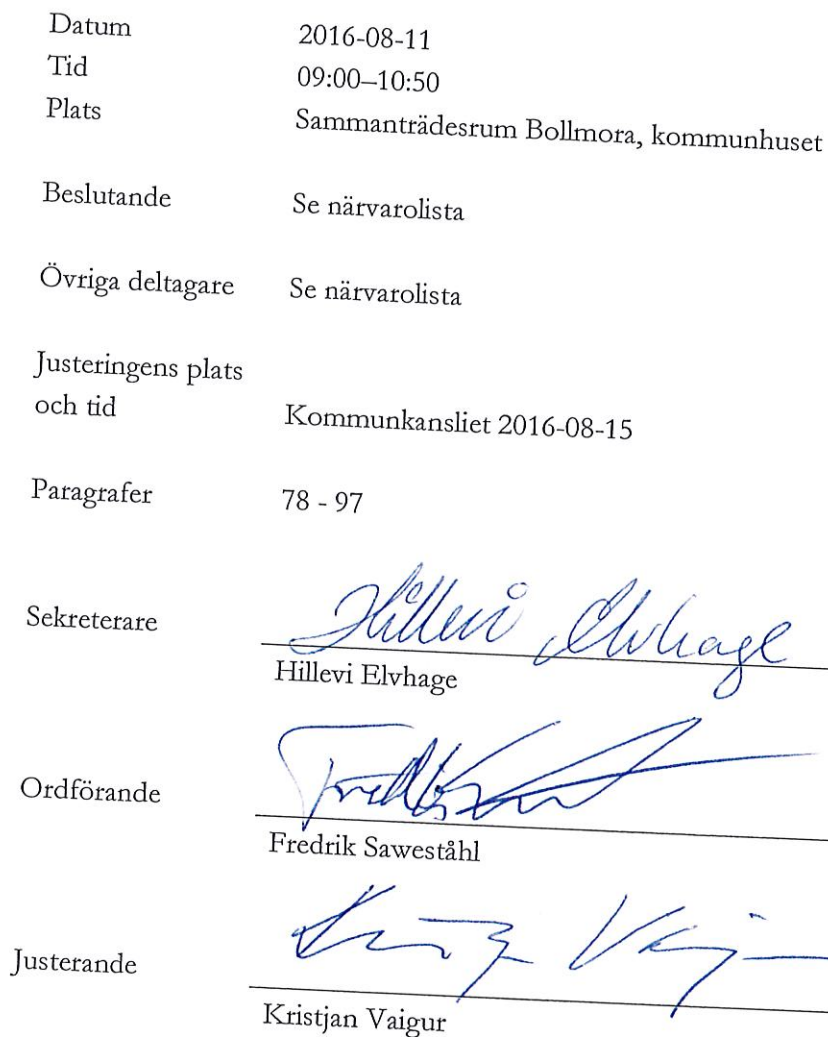 Datum 2016-08-11
Tid 09:00–10:50
Plats Sammanträdesrum Bollmora, kommunhuset
Beslutande Se närvarolista
Övriga deltagare Se närvarolista
Justeringens plats
och tid Kommunkansliet 2016-08-15
Paragrafer 78 - 97
Sekreterare Hillevi Elvhage
Hillevi Elvhage
Ordförande
Fredrik Saweståhl
Justerande
Kristjan Vaigur